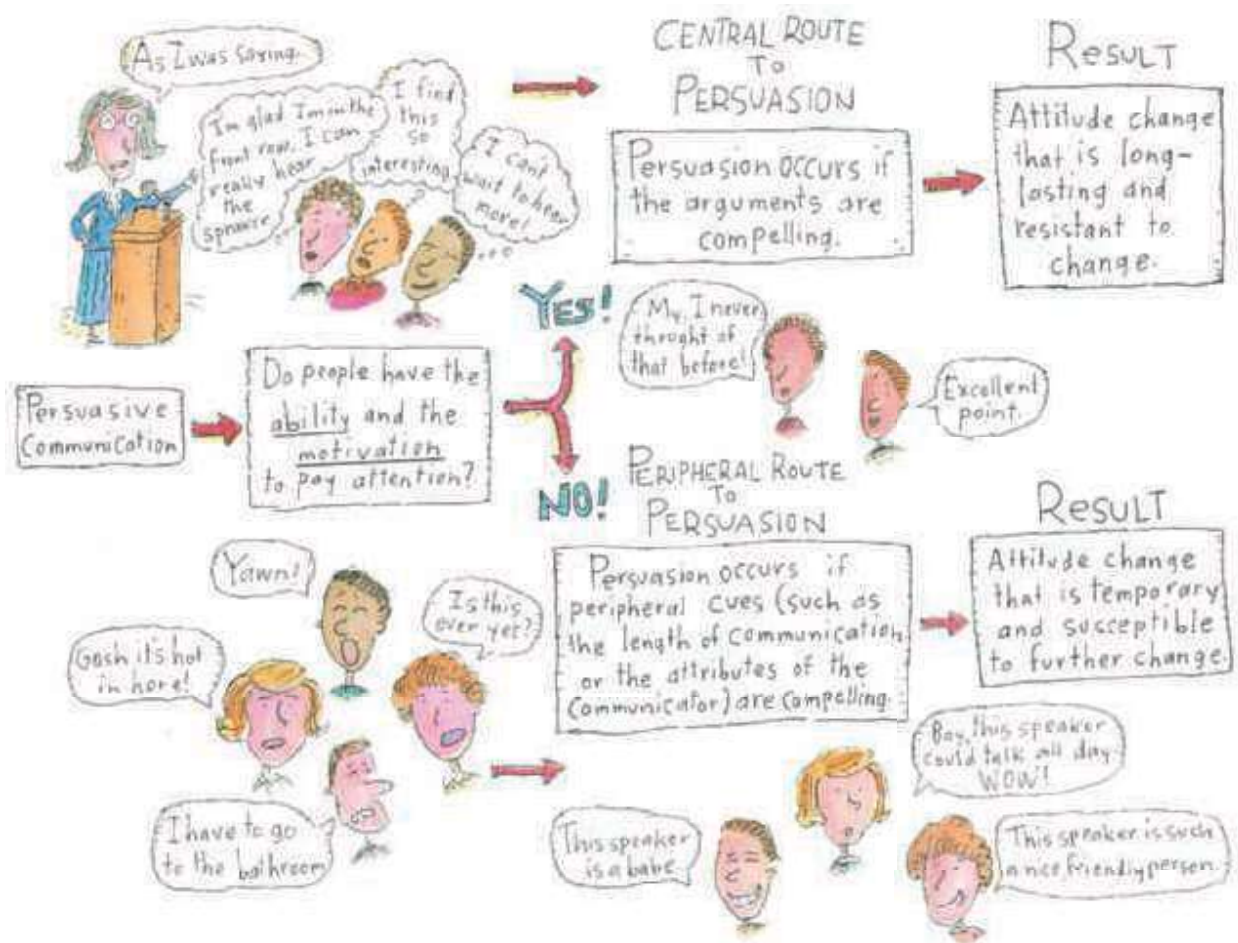 As I was saying.
I'm glad I'm in the
front row. I can
really hear
the
speaker
I find
this
so
interesting
I can't
wait to hear
more!
CENTRAL ROUTE
TO
PERSUASION
Persuasion occurs if
the arguments are
compelling.
RESULT
Attitude change
that is long-
lasting and
resistant to
change.
Persuasive
Communication
Do people have the
ability and the
motivation
to pay attention?
YES!
NO!
My, I never
thought of
that before!
Excellent
point.
PERIPHERAL ROUTE
TO
PERSUASION
Persuasion occurs if
peripheral cues (such as
the length of communication
or the attributes of the
communicator) are compelling.
RESULT
Attitude change
that is temporary
and susceptible
to further change.
Yawn!
Is this
over yet?
Gosh it's hot
in here!
I have to go
to the bathroom
This speaker
is a babe
Boy, this speaker
could talk all day
WOW!
This speaker is such
a nice friendly person.